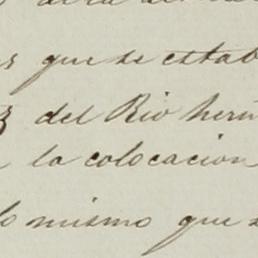 que se estab
del Rio herm
la colocacion
lo mismo que s